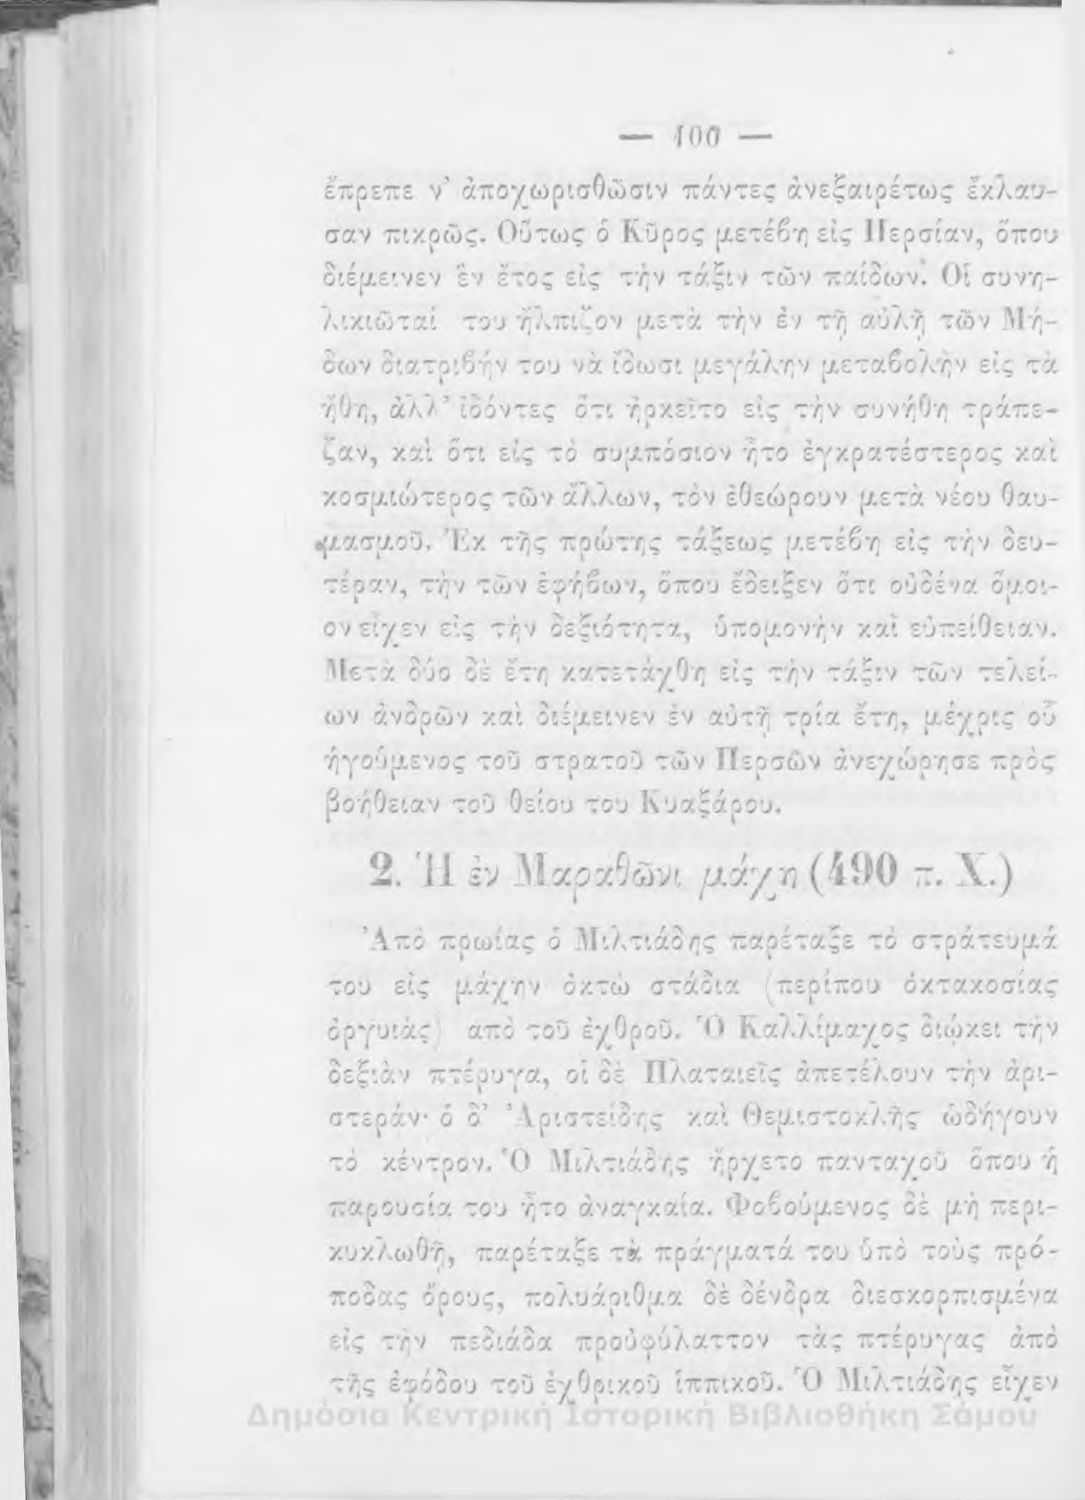 — 100 —
ἔπρεπε ν’ ἀποχωρισθῶσιν πάντες ἀνεξαιρέτως ἔκλαυ-
σαν πικρῶς. Οὕτως ὁ Κῦρος μετέβη εἰς Περσίαν, ὅπου
διέμεινεν ἓν ἔτος εἰς τὴν τάξιν τῶν παίδων. Οἱ συνη-
λικιῶταί του ἤλπιζον μετὰ τὴν ἐν τῇ αὐλῇ τῶν Μή-
δων διατριβήν του νὰ ἴδωσι μεγάλην μεταβολὴν εἰς τὰ
ἤθη, ἀλλ’ ἰδόντες ὅτι ἠρκεῖτο εἰς τὴν συνήθη τράπε-
ζαν, καὶ ὅτι εἰς τὸ συμπόσιον ἦτο ἐγκρατέστερος καὶ
κοσμιώτερος τῶν ἄλλων, τὸν ἐθεώρουν μετὰ νέου θαυ-
μασμοῦ. Ἐκ τῆς πρώτης τάξεως μετέβη εἰς τὴν δευ-
τέραν, τὴν τῶν ἐφήβων, ὅπου ἔδειξεν ὅτι οὐδένα ὅμοι-
ον εἶχεν εἰς τὴν δεξιότητα, ὑπομονὴν καὶ εὐπείθειαν.
Μετὰ δύο δὲ ἔτη κατετάχθη εἰς τὴν τάξιν τῶν τελεί-
ων ἀνδρῶν καὶ διέμεινεν ἐν αὐτῇ τρία ἔτη, μέχρις οὗ
ἡγούμενος τοῦ στρατοῦ τῶν Περσῶν ἀνεχώρησε πρὸς
βοήθειαν τοῦ θείου του Κυαξάρου.
2. Ἡ ἐν Μαραθῶνι μάχη (490 π. Χ.)
Ἀπὸ πρωίας ὁ Μιλτιάδης παρέταξε τὸ στράτευμά
του εἰς μάχην ὀκτὼ στάδια (περίπου ὀκτακοσίας
ὀργυιὰς) ἀπὸ τοῦ ἐχθροῦ. Ὁ Καλλίμαχος διῴκει τὴν
δεξιὰν πτέρυγα, οἱ δὲ Πλαταιεῖς ἀπετέλουν τὴν ἀρι-
στεράν· ὁ δ’ Ἀριστείδης καὶ Θεμιστοκλῆς ὡδήγουν
τὸ κέντρον. Ὁ Μιλτιάδης ἤρχετο πανταχοῦ ὅπου ἡ
παρουσία του ἦτο ἀναγκαία. Φοβούμενος δὲ μὴ περι-
κυκλωθῇ, παρέταξε τὰ πράγματά του ὑπὸ τοὺς πρό-
ποδας ὄρους, πολυάριθμα δὲ δένδρα διεσκορπισμένα
εἰς τὴν πεδιάδα προὐφύλαττον τὰς πτέρυγας ἀπὸ
τῆς ἐφόδου τοῦ ἐχθρικοῦ ἱππικοῦ. Ὁ Μιλτιάδης εἶχεν
Δημόσια Κεντρική Ιστορική Βιβλιοθήκη Σάμου